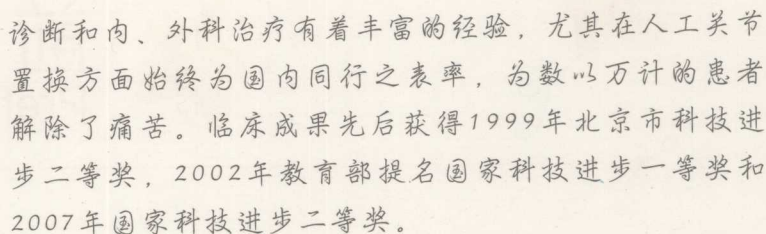 诊断和内、外科治疗有着丰富的经验，尤其在人工关节
置换方面始终为国内同行之表率，为数以万计的患者
解除了痛苦。临床成果先后获得1999年北京市科技进
步二等奖，2002年教育部提名国家科技进步一等奖和
2007年国家科技进步二等奖。